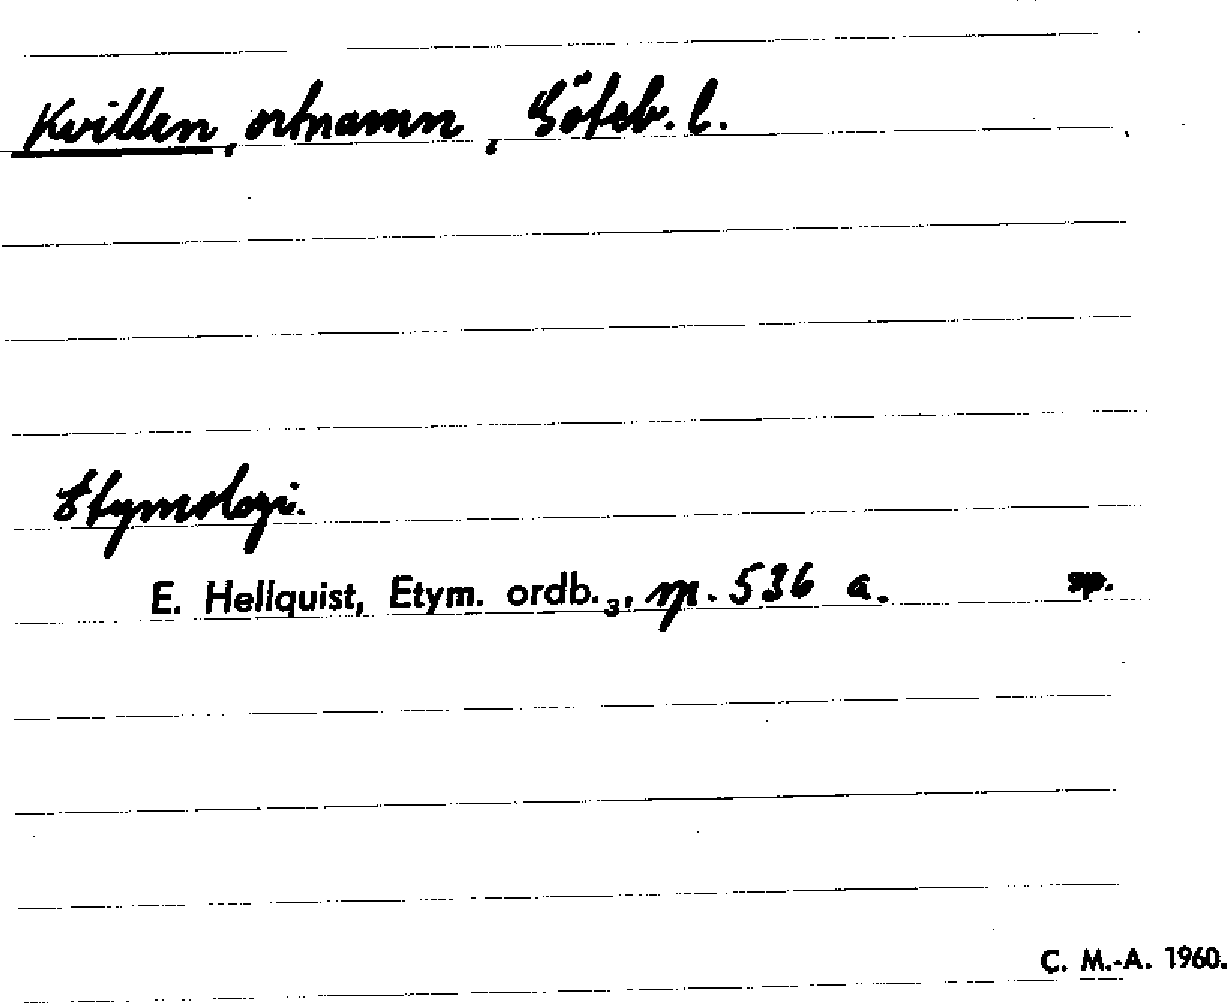 Kvillen, ortnamn, Göteb. l.
Etymologi.
E. Hellquist, Etym. ordb.₃, sp. 536 a.
C. M.-A. 1960.